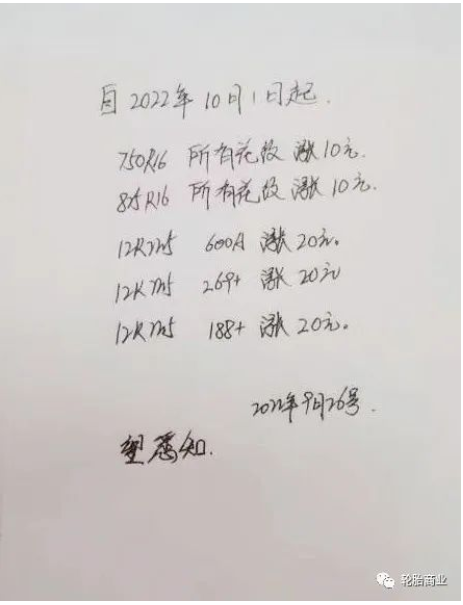 自2022年10月1日起.
750R16 所有花纹 涨10元.
825R16 所有花纹 涨10元.
12R22.5 600A 涨20元。
12R22.5 269+ 涨20元
12R22.5 188+ 涨20元。
2022年9月26号.
望悉知.
轮胎商业